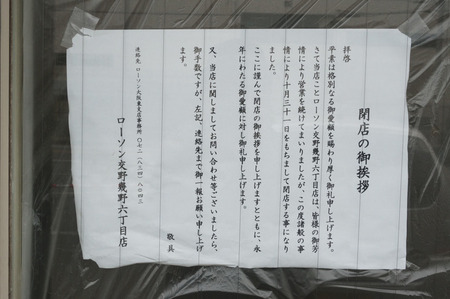 閉店の御挨拶
拝啓
平素は格別なる御愛顧を賜わり厚く御礼申し上げます。
さて当店ことローソン交野幾野六丁目店は、皆様の御芳
情により営業を続けてまいりましたが、この度諸般の事
情により十月三十一日をもちまして閉店する事になり
ました。
ここに謹んで閉店の御挨拶を申し上げますとともに、永
年にわたる御愛顧に対し御礼申し上げます。
又、当店に関しましてお問い合わせ等ございましたら、
御手数ですが、左記、連絡先まで御一報お願い申し上げ
ます。
敬具
連絡先 ローソン大阪東支店事務所 〇七二（八二四）八〇四三
ローソン交野幾野六丁目店